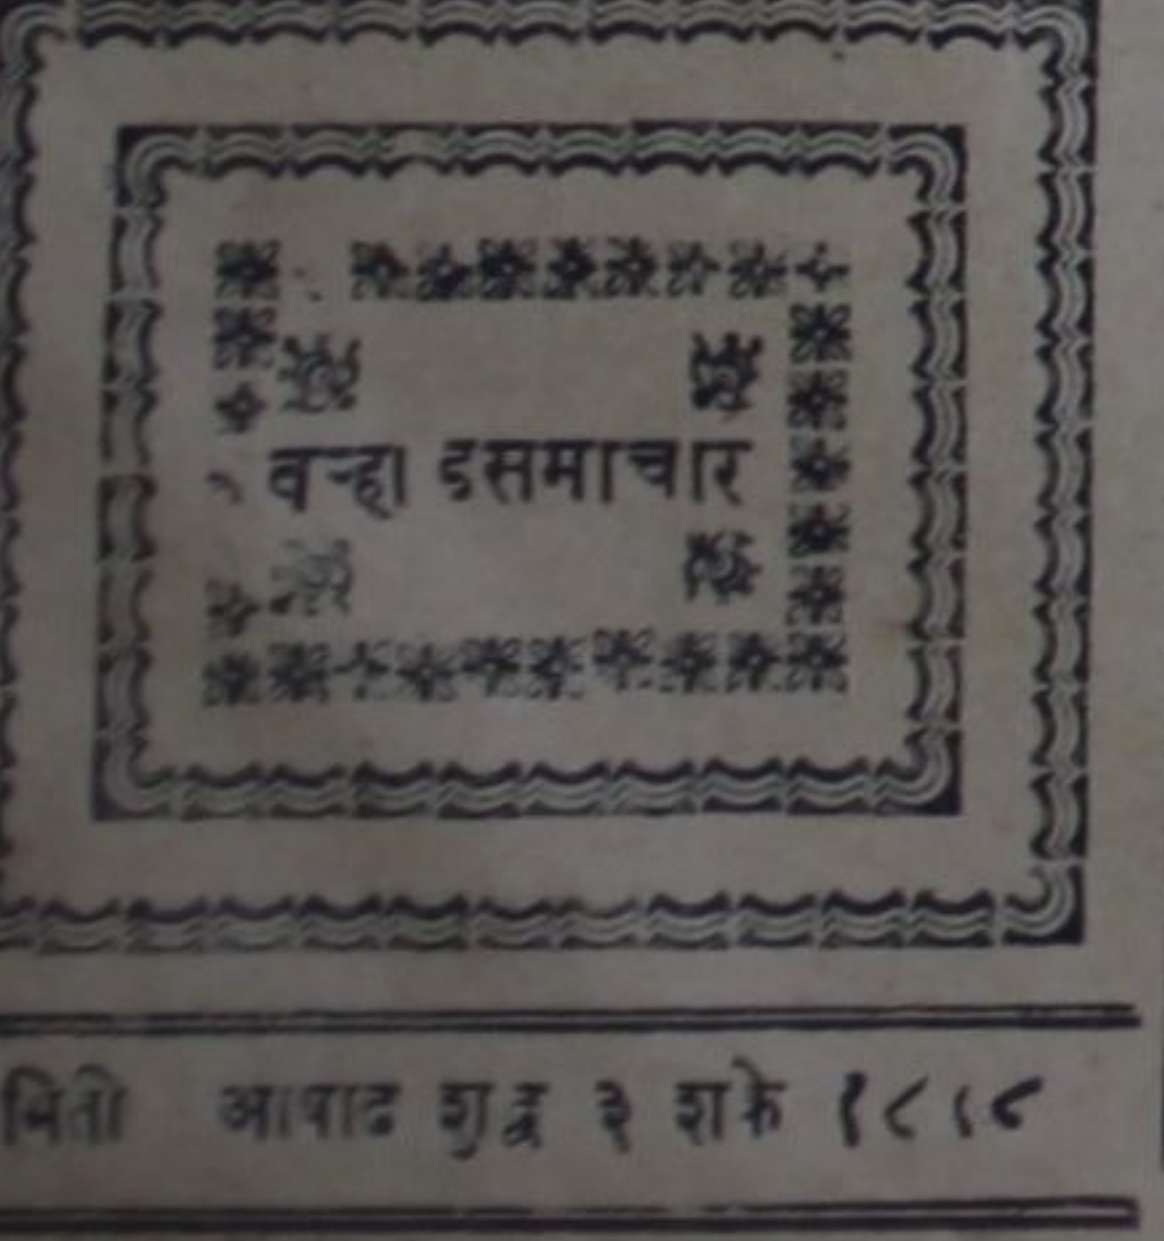 वऱ्हाडसमाचार
मिती आषाढ शुद्ध ३ शके १८१८